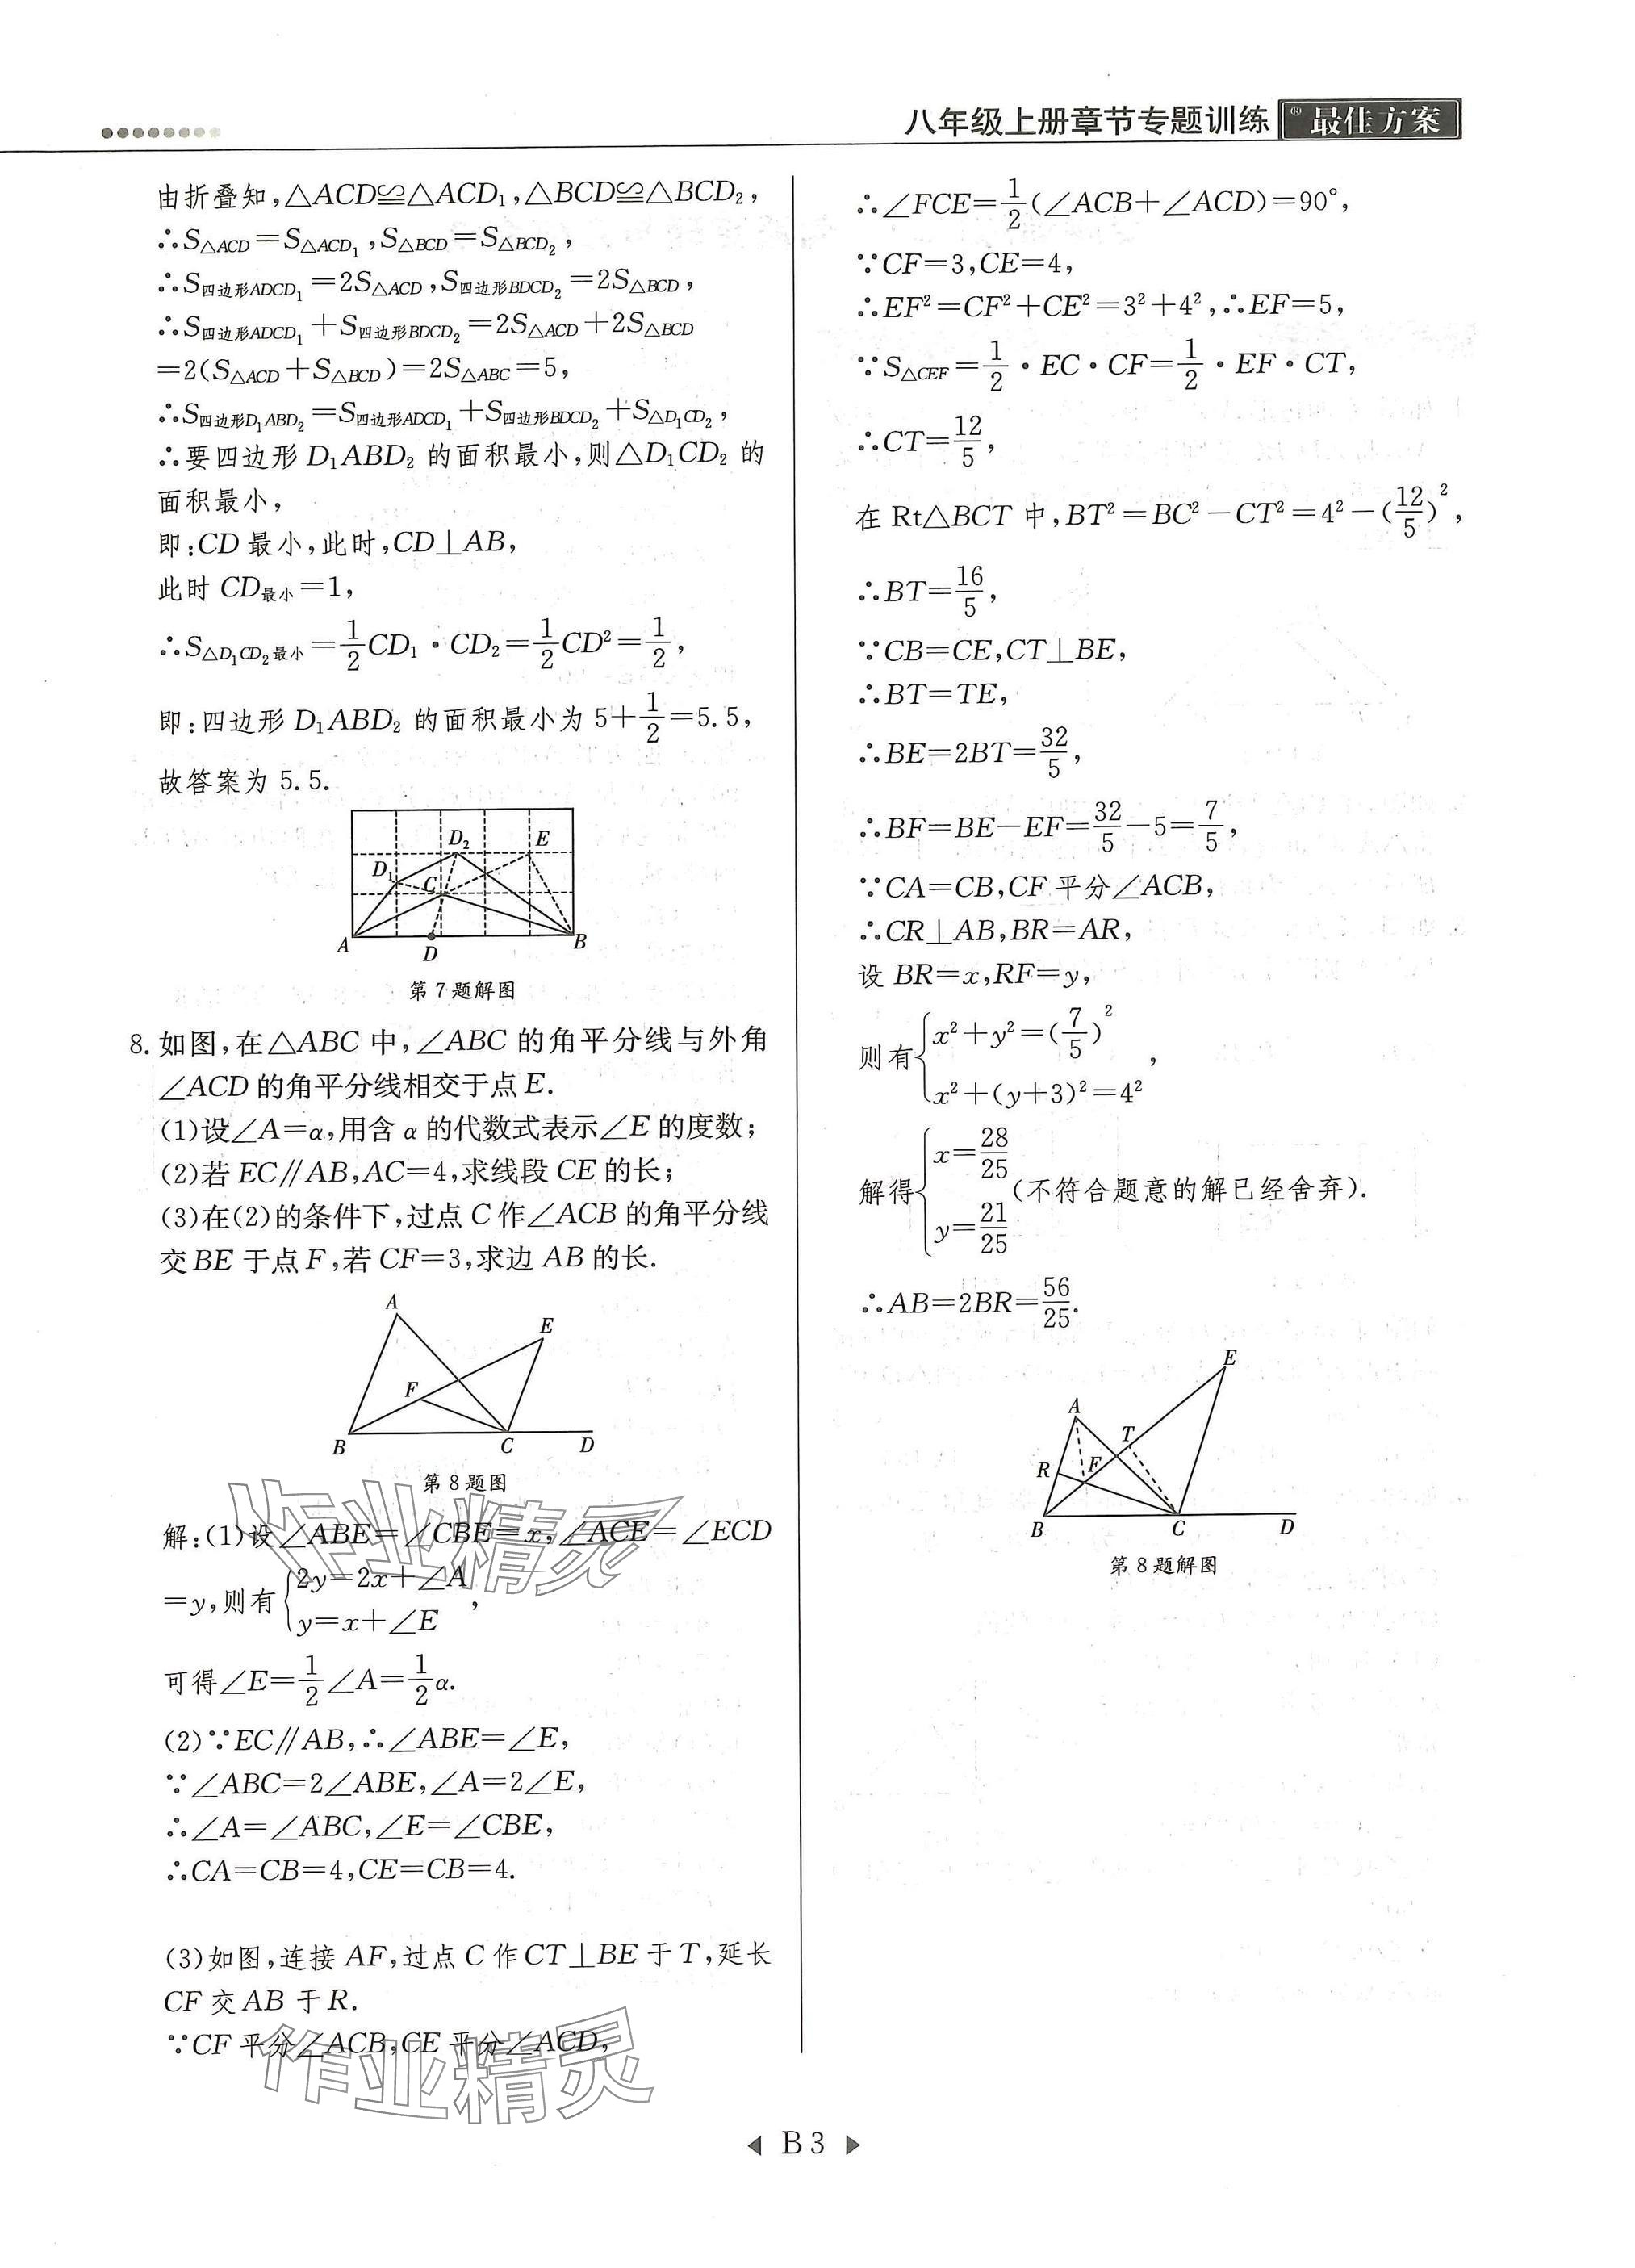 八年级上册章节专题训练 ®最佳方案
由折叠知,△ACD≌△ACD₁,△BCD≌△BCD₂,
∴S△ACD=S△ACD₁,S△BCD=S△BCD₂,
∴S四边形ADCD₁=2S△ACD,S四边形BDCD₂=2S△BCD,
∴S四边形ADCD₁+S四边形BDCD₂=2S△ACD+2S△BCD
=2(S△ACD+S△BCD)=2S△ABC=5,
∴S四边形D₁ABD₂=S四边形ADCD₁+S四边形BDCD₂+S△D₁CD₂,
∴要四边形 D₁ABD₂ 的面积最小,则△D₁CD₂ 的
面积最小,
即:CD 最小,此时,CD⊥AB,
此时 CD最小=1,
∴S△D₁CD₂最小=1/2CD₁·CD₂=1/2CD²=1/2,
即:四边形 D₁ABD₂ 的面积最小为 5+1/2=5.5,
故答案为 5.5.
D₂
E
D₁
C
A
D
B
第7题解图
8.如图,在△ABC 中,∠ABC 的角平分线与外角
∠ACD 的角平分线相交于点 E.
(1)设∠A=α,用含 α 的代数式表示∠E 的度数;
(2)若 EC∥AB,AC=4,求线段 CE 的长;
(3)在(2)的条件下,过点 C 作∠ACB 的角平分线
交 BE 于点 F,若 CF=3,求边 AB 的长.
A
E
F
B
C
D
第8题图
解:(1)设∠ABE=∠CBE=x,∠ACE=∠ECD
=y,则有{2y=2x+∠A
y=x+∠E,
可得∠E=1/2∠A=1/2α.
(2)∵EC∥AB,∴∠ABE=∠E,
∵∠ABC=2∠ABE,∠A=2∠E,
∴∠A=∠ABC,∠E=∠CBE,
∴CA=CB=4,CE=CB=4.
(3)如图,连接 AF,过点 C 作 CT⊥BE 于 T,延长
CF 交 AB 于 R.
∵CF 平分∠ACB,CE 平分∠ACD,
∴∠FCE=1/2(∠ACB+∠ACD)=90°,
∵CF=3,CE=4,
∴EF²=CF²+CE²=3²+4²,∴EF=5,
∵S△CEF=1/2·EC·CF=1/2·EF·CT,
∴CT=12/5,
在 Rt△BCT 中,BT²=BC²-CT²=4²-(12/5)²,
∴BT=16/5,
∵CB=CE,CT⊥BE,
∴BT=TE,
∴BE=2BT=32/5,
∴BF=BE-EF=32/5-5=7/5,
∵CA=CB,CF 平分∠ACB,
∴CR⊥AB,BR=AR,
设 BR=x,RF=y,
则有{x²+y²=(7/5)²
x²+(y+3)²=4²,
解得{x=28/25
y=21/25(不符合题意的解已经舍弃).
∴AB=2BR=56/25.
E
A
T
R
F
B
C
D
第8题解图
作业精灵
作业精灵
B3